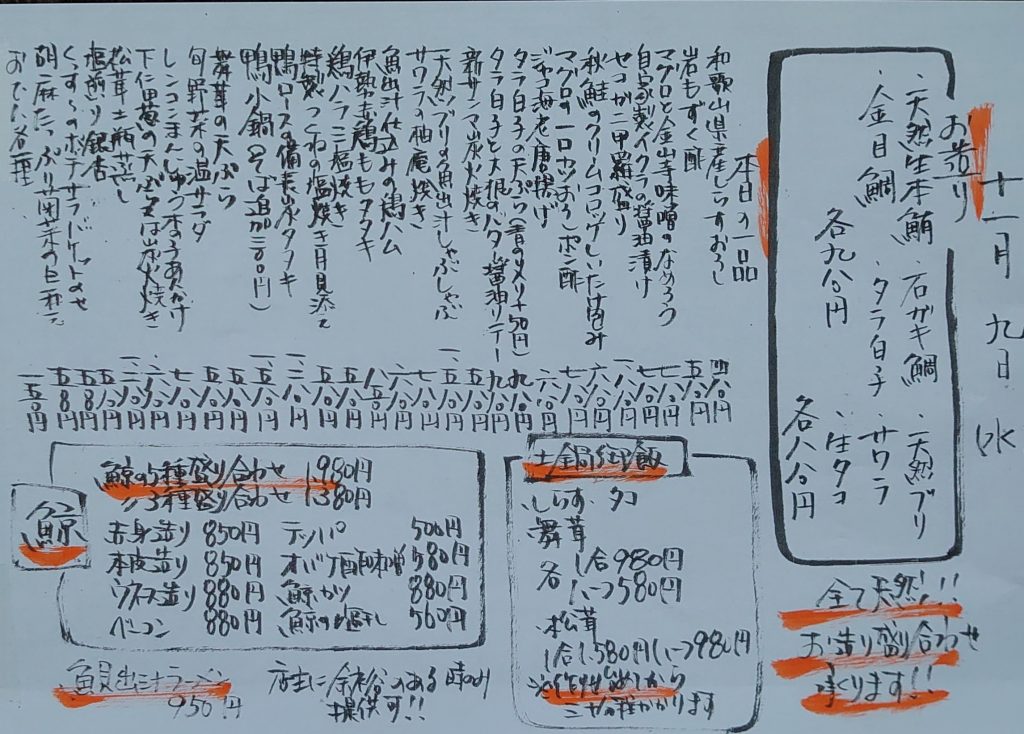 十一月九日 水
お造り
・天然生本鮪・石ガキ鯛・天然ブリ
・金目鯛・タラ白子・サワラ
・生タコ
各九八〇円
各八八〇円
全て天然!!
お造り盛り合わせ
承ります!!
本日の一品
和歌山県産しらすおろし 四八〇円
岩もずく酢 五八〇円
マグロと金山寺味噌のなめろう 七八〇円
自家製イクラの醤油漬け 七八〇円
セコガニ甲羅盛り
秋鮭のクリームコロッケしいたけ包み
マグロの一口カツおろしポン酢 七八〇円
ジャコ海老唐揚げ 六八〇円
タラ白子の天ぷら(青のメリ+50円) 九八〇円
タラ白子と大根のバター醤油ソテー 九八〇円
新サンマ炭火焼き
天然ブリの魚出汁しゃぶしゃぶ
サワラの柚庵焼き 七八〇円
魚出汁仕込みの鶏ハム 六八〇円
伊勢赤鶏ももタタキ 八五〇円
鶏ハラミ塩焼き 五八〇円
特製つくねの塩焼き月見添え 五八〇円
鴨ロースの備長炭タタキ
鴨小鍋(そば追加三〇〇円)
舞茸の天ぷら
旬野菜の温サラダ
レンコンまんじゅうきのこあんかけ 七八〇円
下仁田葱の天ぷら又は炭火焼き
松茸土瓶蒸し
塩煎り銀杏 五八〇円
くんすもののポテサラバケットのせ 五八〇円
胡麻たっぷり
おでん各種 一五〇円
土鍋御飯
しらす・タコ
舞茸
各 1合980円
ハーフ580円
松茸
1合1,580円ハーフ980円
※作り始めてから
三十分程かかります
鯨
鯨の5種盛り合わせ 1,980円
〃3種盛り合わせ 1,380円
赤身造り 850円 テッパ 500円
本皮造り 850円 オバケ酢味噌 580円
ウネス造り 880円 鯨カツ 880円
ベーコン 880円 鯨の塩干し 560円
魚貝出汁ラーメン
950円
店主に余裕のある時のみ
提供可!!